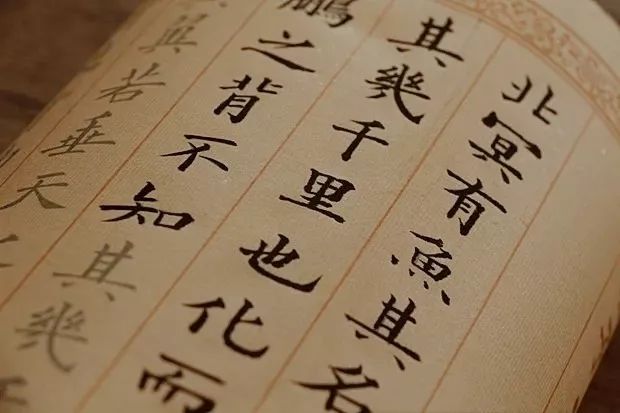 北冥有魚其名
其幾千里也化而
鵬之背不知其幾
若垂天